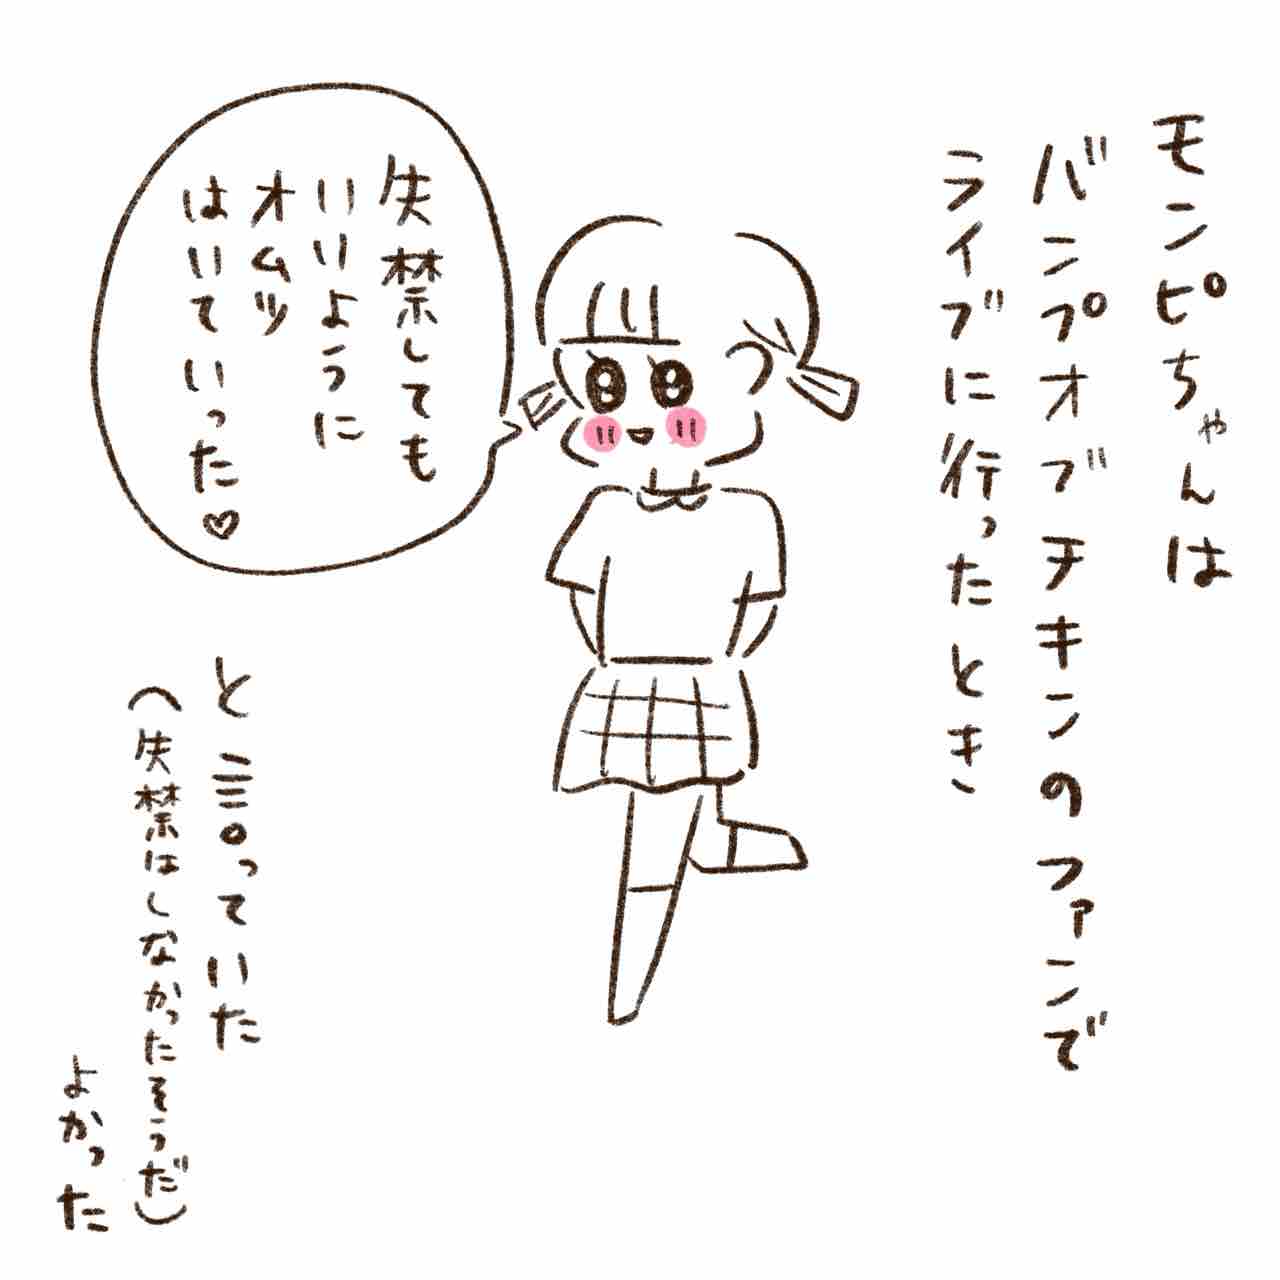 モンピちゃんは
バンプオブチキンのファンで
ライブに行ったとき
失禁しても
いいように
オムツ
はいていった♡
と言っていた
(失禁はしなかったそうだ)
よかった